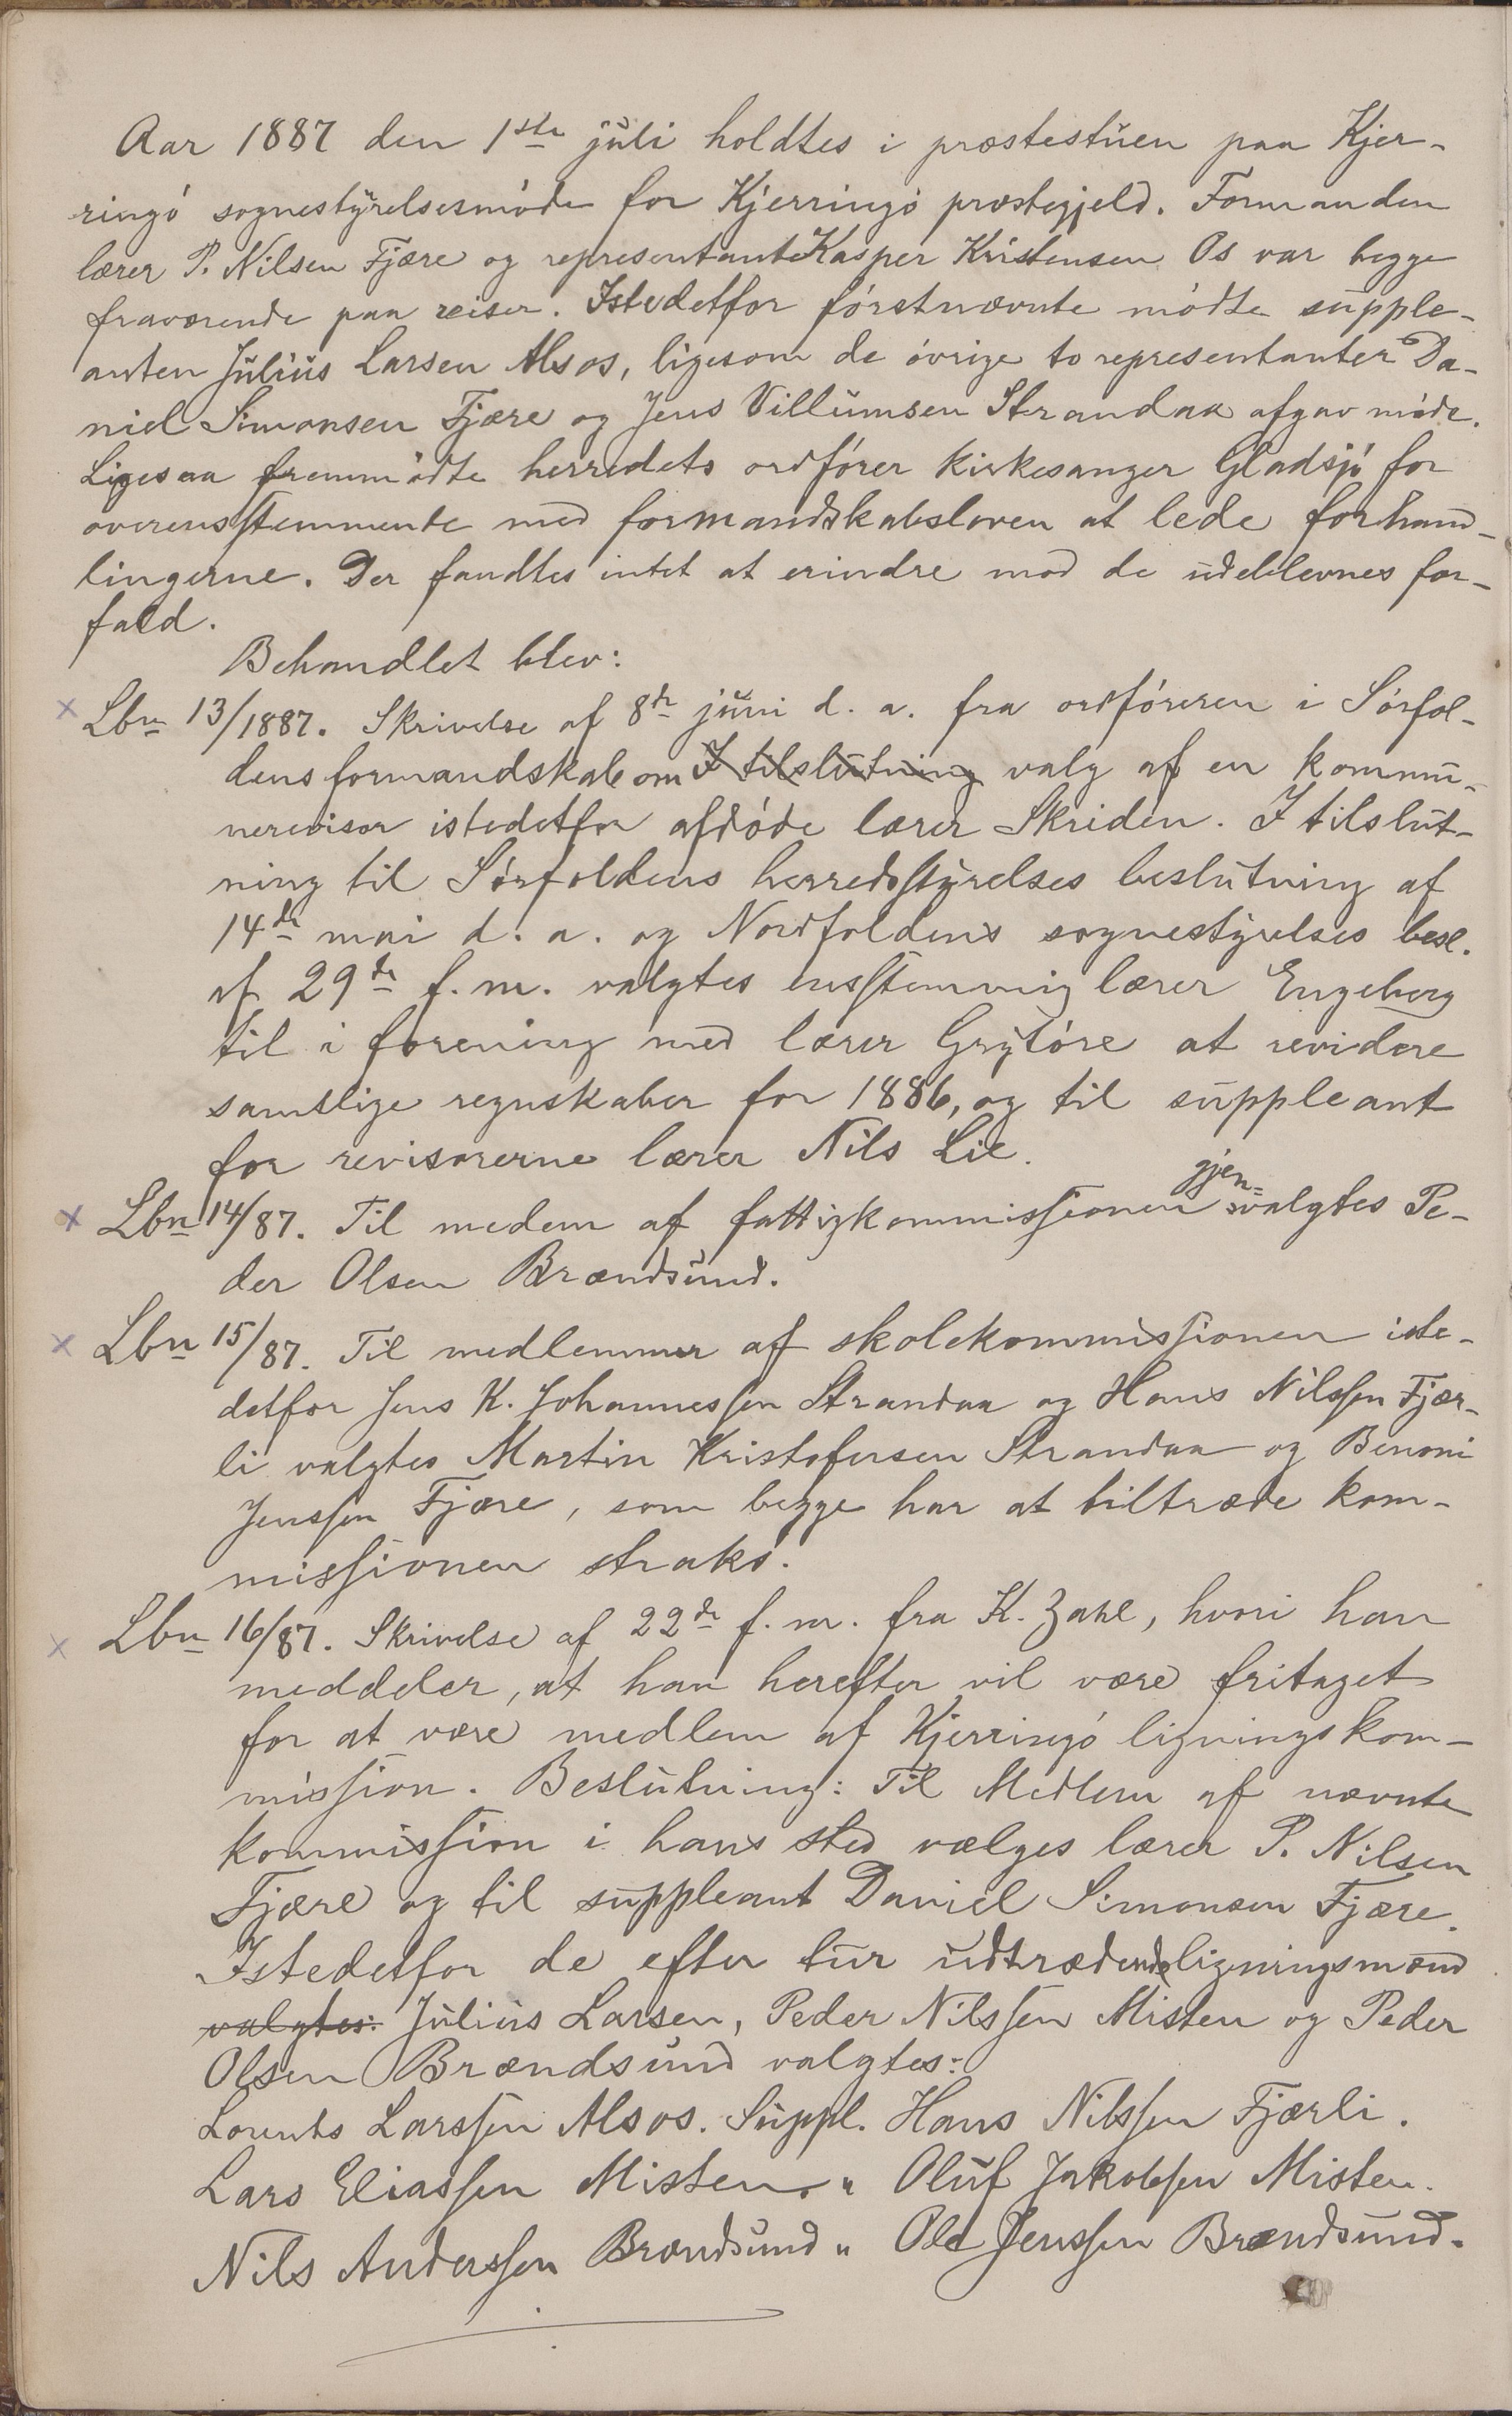 Aar 1887 den 1ste juli holdtes i præstestuen paa Kjer-
ringö sognestyrelsesmöde for Kjerringö præstegjeld. Formanden
lærer P. Nilsen Fjære og representant Kasper Kristensen Os var begge
fraværende paa reiser. Istedetfor förstnævnte mödte supple-
anten Julius Larsen Alsos, ligesom de övrige to representanter Da-
niel Simonsen Fjære og Jens Villumsen Strandaa afgav möde.
Ligesaa fremmödte herredets ordförer kirkesanger Gladsjö for
overensstemmende med formandskabsloven at lede forhand-
lingerne. Der fandtes intet at erindre mod de udeblevnes for-
fald.
Behandlet blev:
x Lbn 13/1887. Skrivelse af 8de juni d. a. fra ordföreren i Sörfol-
dens formandskab om I tilslutning valg af en kommu-
nerevisor istedetfor afdöde lærer Skriden. I tilslut-
ning til Sörfoldens herredsstyrelses beslutning af
14de mai d. a. og Nordfoldens sognestyrelses besl.
af 29de f. m. valgtes ensstemmig lærer Engeberg
til i forening med lærer Grytöre at revidere
samtlige regnskaber for 1886, og til suppleant
for revisorerne lærer Nils Lie.
x Lbn 14/87. Til medem af fattigkommissionen gjen=valgtes Pe-
der Olsen Brændsund.
x Lbn 15/87. Til medlemmer af skolekommissionen iste-
detfor Jens K. Johannessen Strandaa og Hans Nilssen Fjær-
li valgtes Martin Kristofersen Strandaa og Benoni
Jenssen Fjære, som begge har at tiltræde kom-
missionen straks.
x Lbn 16/87. Skrivelse af 22de f. m. fra K. Zahl, hvori han
meddeler, at han herefter vil være fritaget
for at være medlem af Kjerringö ligningskom-
mission. Beslutning: Til Medlem af nævnte
kommission i hans sted vælges lærer P. Nilsen
Fjære og til suppleant Daniel Simonsen Fjære.
Istedetfor de efter tur udtrædende ligningsmænd
valgtes: Julius Larsen, Peder Nilssen Misten og Peder
Olsen Brændsund valgtes:
Lorents Larssen Alsos. Suppl. Hans Nilssen Fjærli.
Lars Eliassen Misten. " Oluf Jakobsen Misten.
Nils Anderssen Brændsund " Ole Jenssen Brændsund.